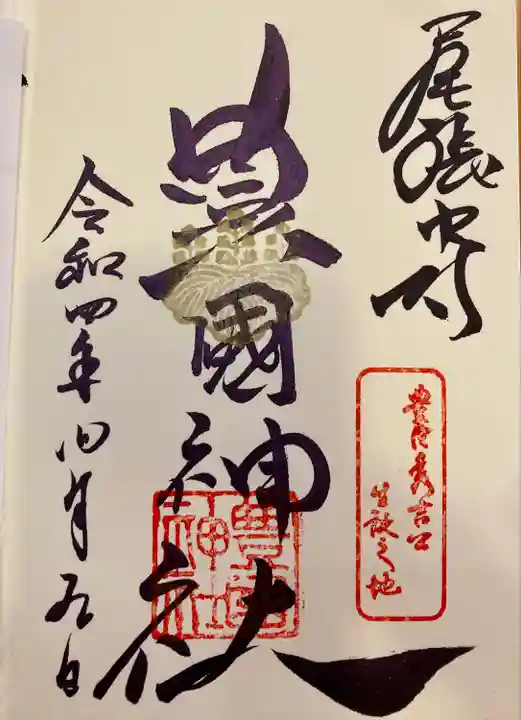 尾張中村
豊臣秀吉公
生誕之地
豊國神社
豊國神社
令和四年四月九日